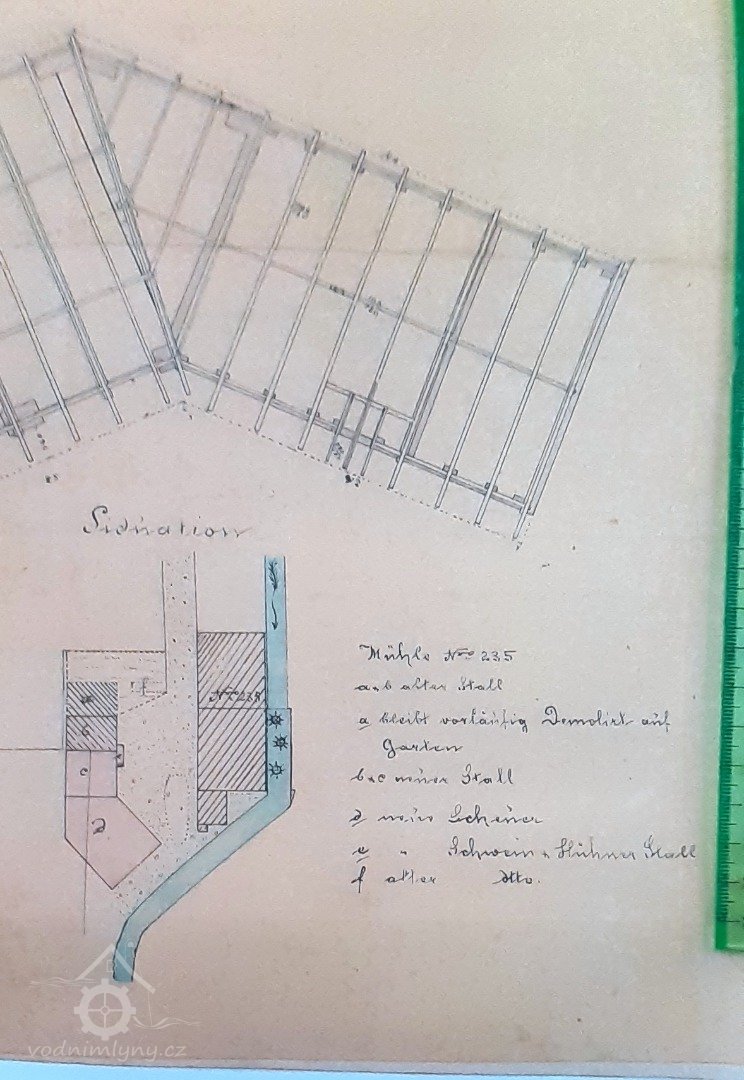 Situation
No 235
a
f
b
c
D
Mühle No 235
a+b alter Stall
a bleibt vorläufig Demolirt auf
Garten
b+c neuer Stall
d neue Scheuer
e " Schwein u Hühner Stall
f alter dtto.
vodnimlyny.cz